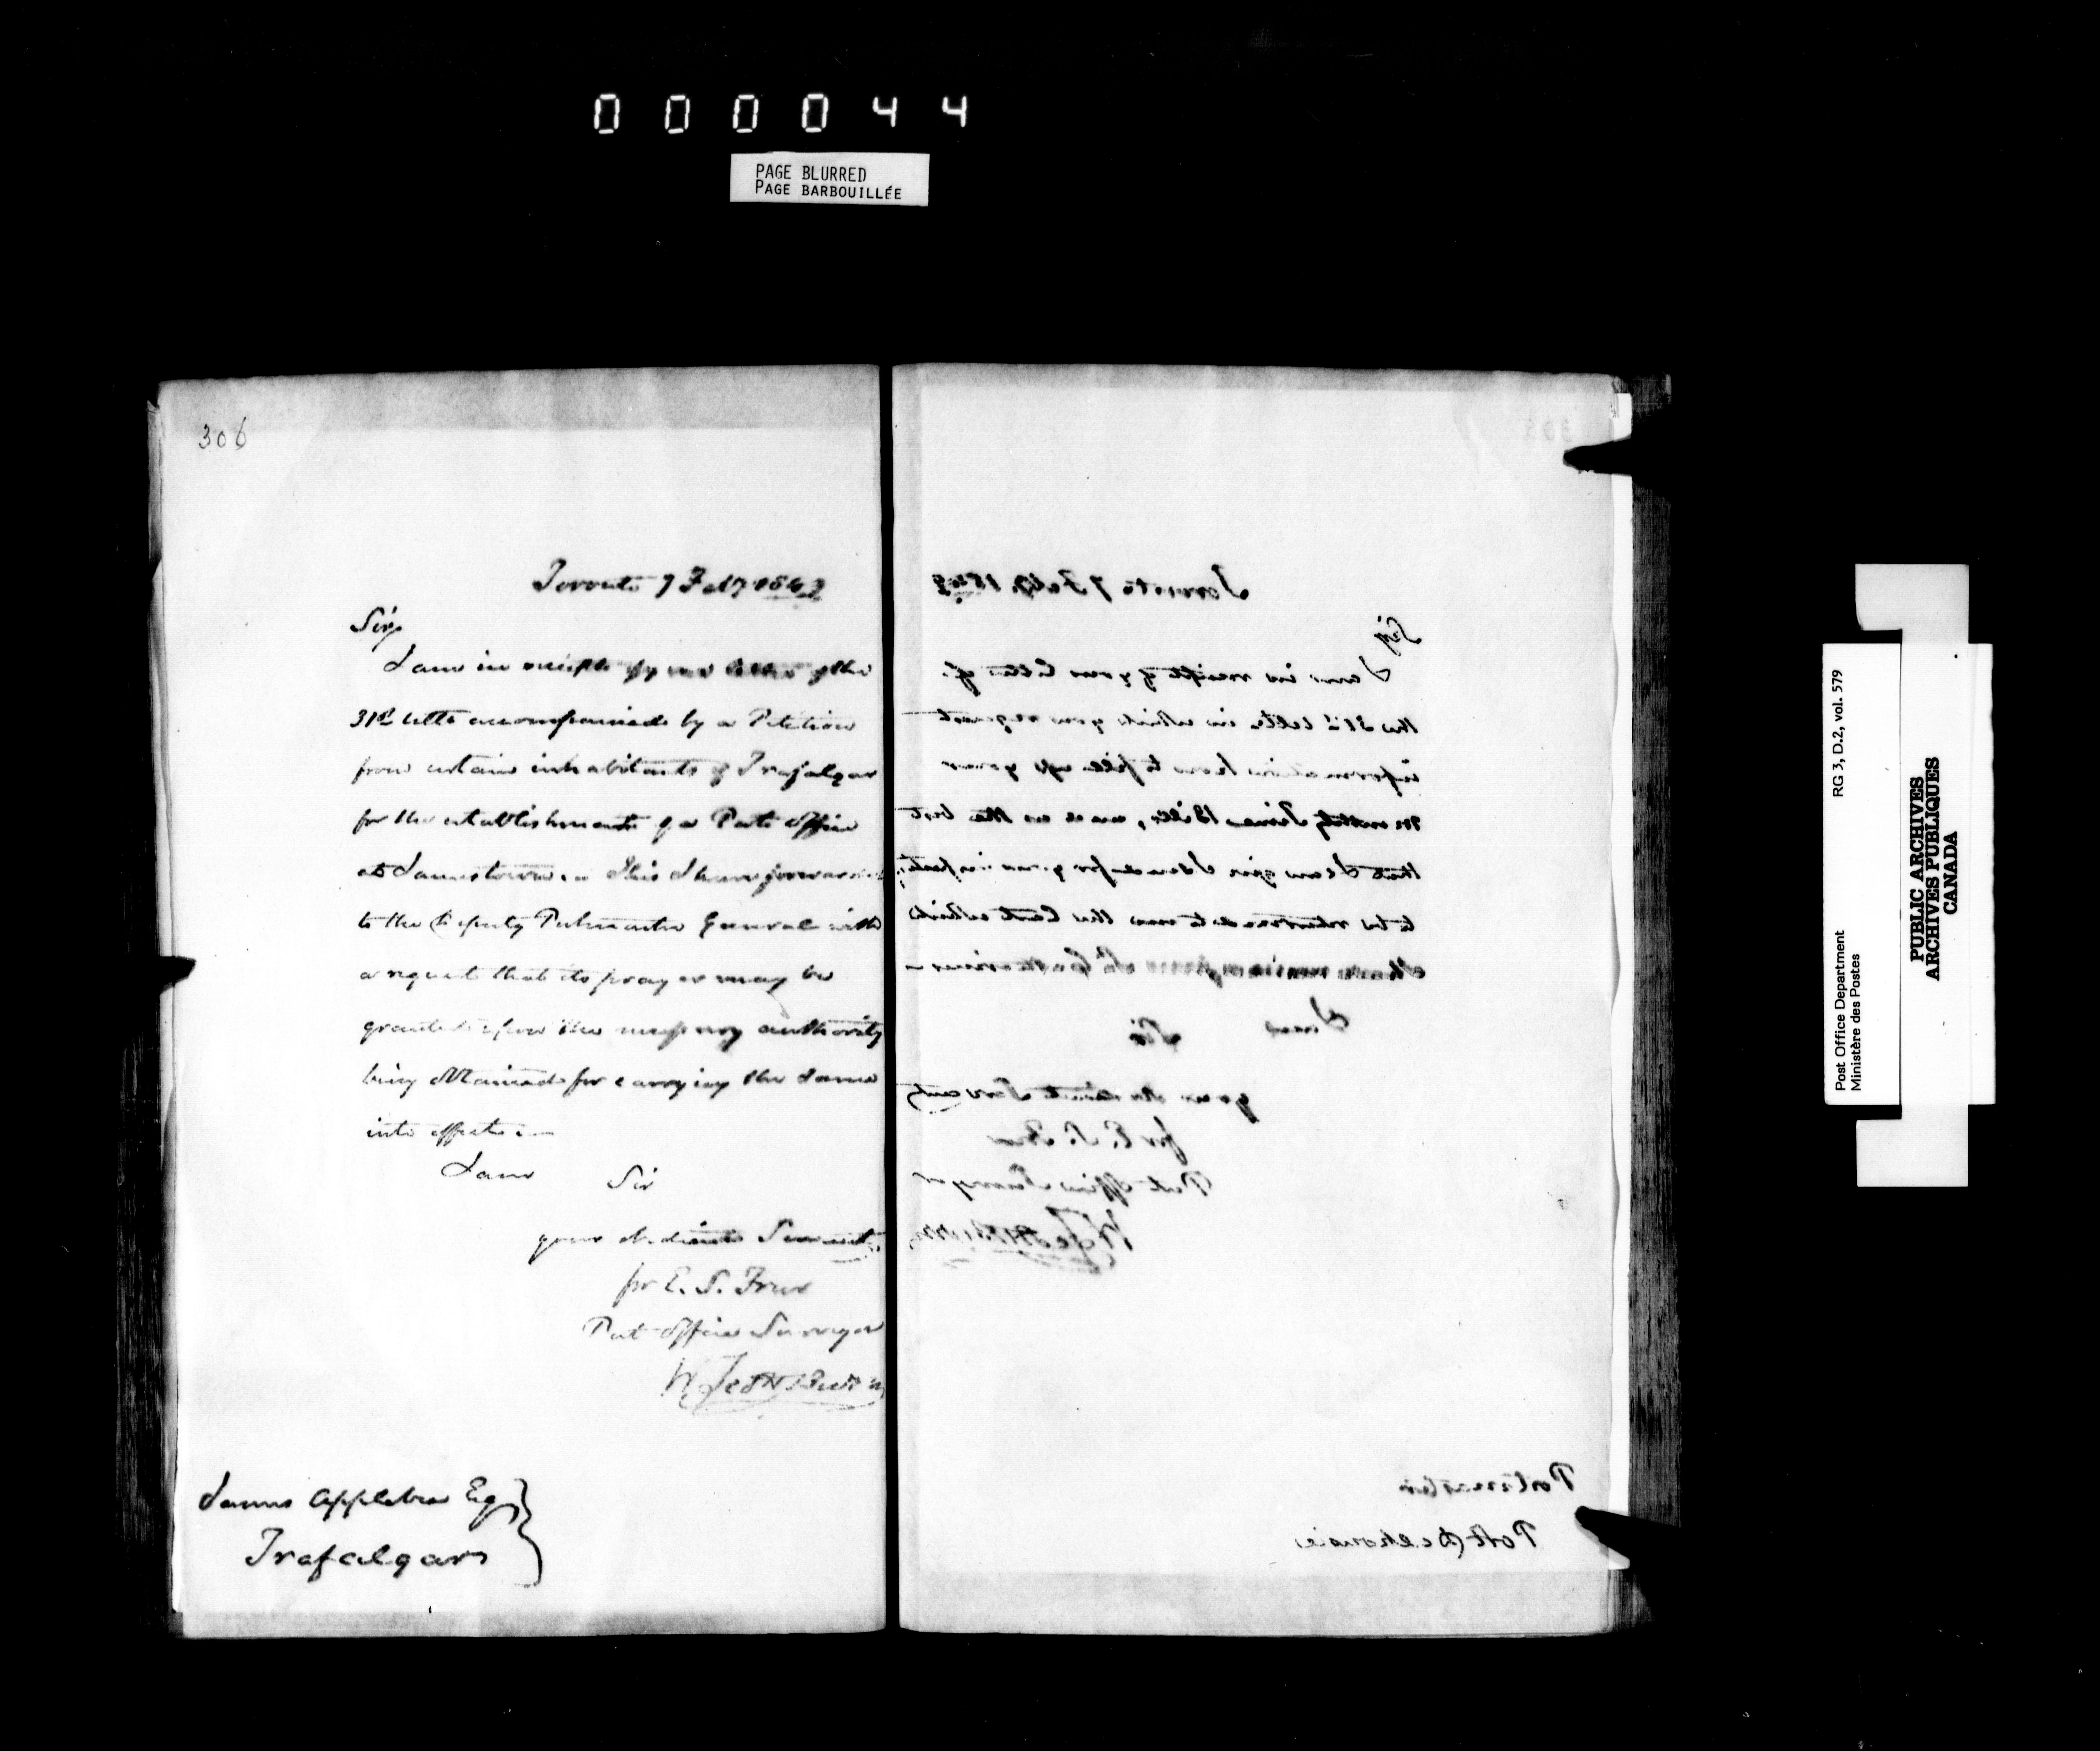 000044
PAGE BLURRED
PAGE BARBOUILLÉE
306
Toronto 7 Feb'y 1843
Sir,
I am in receipt of your letter of the
31st Ulto accompanied by a Petition
from certain inhabitants of Trafalgar
for the establishment of a Post Office
at Jamestown. This I have forwarded
to the Deputy Postmaster General with
a request that its prayer may be
granted upon the necessary authority
being obtained for carrying the same
into effect.—
I am Sir
your obedient Servant,
for E. S. Freer
Post Office Surveyor
James Appelbe Esq,
Trafalgar
305
Toronto 7 Feb'y. 1843
Sir,
I am in receipt of your letter of
the 31st Ulto. in which you request
information how to fill up your
Monthly Time Bills, and the best
that I can give I send for your
to be returned to me the Card which
St. Catharines —
I am Sir
your obedient Servant,
for E. S. Freer
Post Office Surveyor
Postmaster
Port Dalhousie
Post Office Department
Ministère des Postes
RG 3, D.2, vol. 579
PUBLIC ARCHIVES
ARCHIVES PUBLIQUES
CANADA